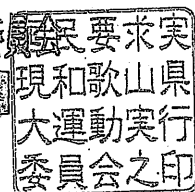 員会民要求実
現和歌山県
大運動実行
委員会之印